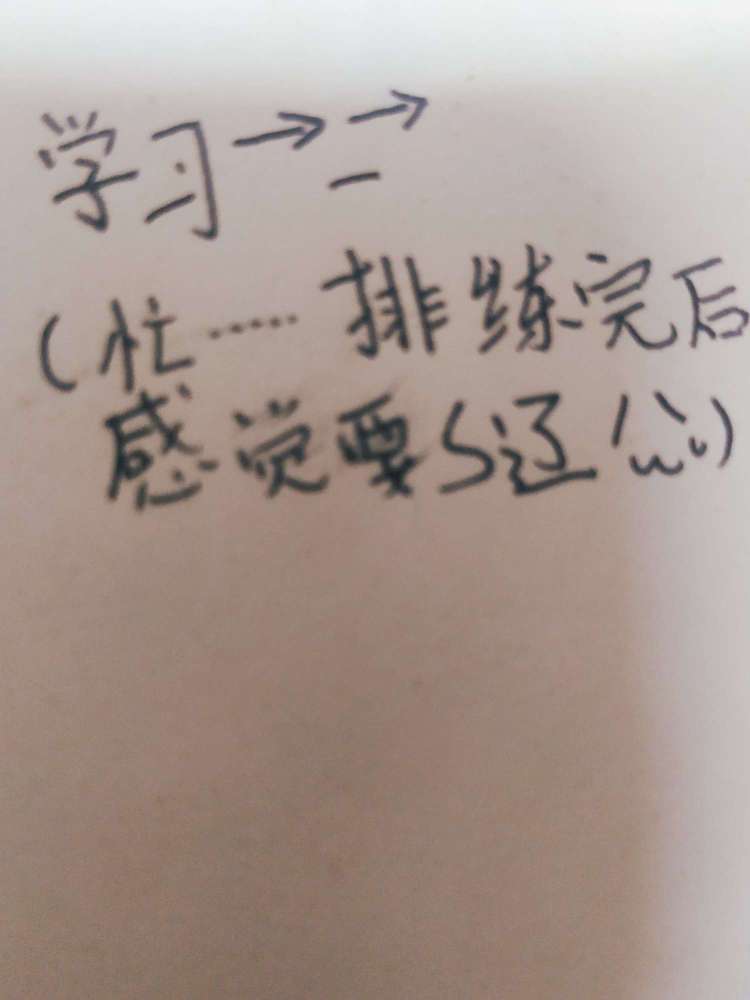 学习→→
一
(忙……排练完后
感觉要S辽)